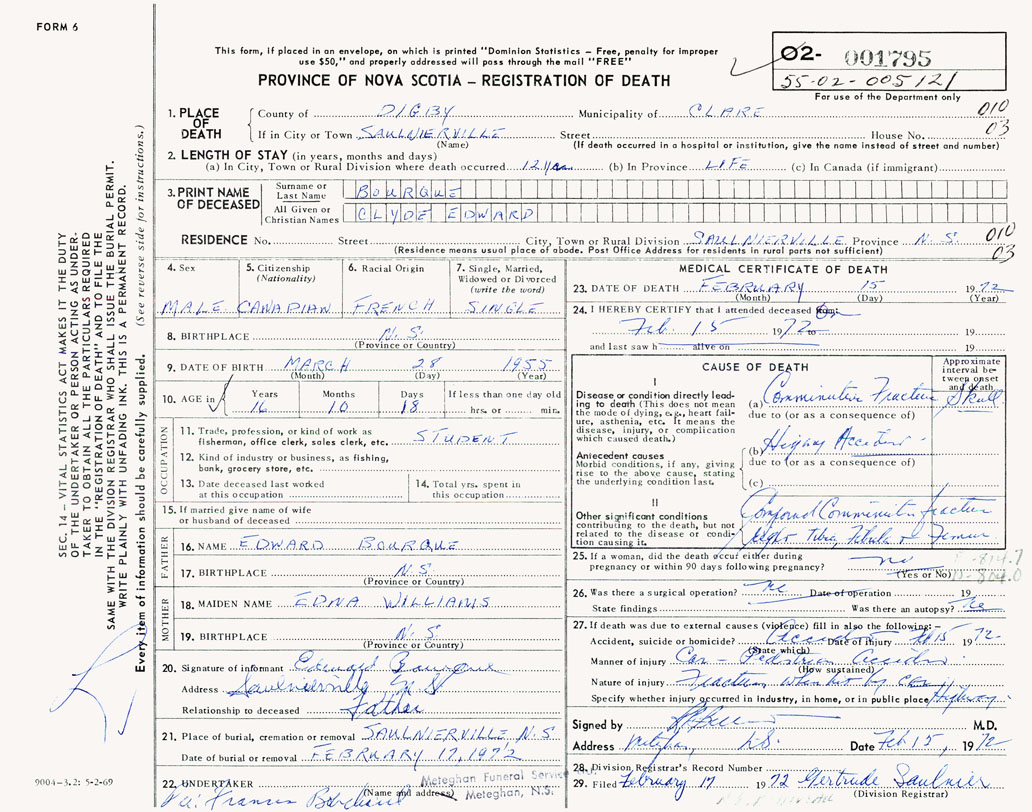 FORM 6
This form, if placed in an envelope, on which is printed "Dominion Statistics – Free, penalty for improper
use $50," and properly addressed will pass through the mail "FREE"
PROVINCE OF NOVA SCOTIA – REGISTRATION OF DEATH
02- 001795
55-02-005121
For use of the Department only
1. PLACE OF DEATH
County of DIGBY Municipality of CLARE 010
If in City or Town SAULNIERVILLE Street House No. 03
(Name) (If death occurred in a hospital or institution, give the name instead of street and number)
2. LENGTH OF STAY (in years, months and days)
(a) In City, Town or Rural Division where death occurred 12 yrs. (b) In Province LIFE (c) In Canada (if immigrant)
3. PRINT NAME OF DECEASED
Surname or Last Name BOURQUE
All Given or Christian Names CLYDE EDWARD
RESIDENCE No. Street City, Town or Rural Division SAULNIERVILLE Province N.S. 010
(Residence means usual place of abode. Post Office Address for residents in rural parts not sufficient) 03
4. Sex
MALE
5. Citizenship
(Nationality)
CANADIAN
6. Racial Origin
FRENCH
7. Single, Married,
Widowed or Divorced
(write the word)
SINGLE
8. BIRTHPLACE N.S.
(Province or Country)
9. DATE OF BIRTH MARCH 28 1955
(Month) (Day) (Year)
10. AGE in
Years Months Days If less than one day old
16 10 18 hrs. or min.
OCCUPATION
11. Trade, profession, or kind of work as
fisherman, office clerk, sales clerk, etc. STUDENT
12. Kind of industry or business, as fishing,
bank, grocery store, etc.
13. Date deceased last worked
at this occupation
14. Total yrs. spent in
this occupation
15. If married give name of wife
or husband of deceased
FATHER
16. NAME EDWARD BOURQUE
17. BIRTHPLACE N.S.
(Province or Country)
MOTHER
18. MAIDEN NAME EDNA WILLIAMS
19. BIRTHPLACE N.S.
(Province or Country)
20. Signature of informant Edward Bourque
Address Saulnierville N S
Relationship to deceased Father
21. Place of burial, cremation or removal SAULNIERVILLE N.S.
Date of burial or removal FEBRUARY 17, 1972
22. UNDERTAKER
(Name and address)
Meteghan Funeral Service
Meteghan, N.S.
Francis
MEDICAL CERTIFICATE OF DEATH
23. DATE OF DEATH FEBRUARY 15 1972
(Month) (Day) (Year)
24. I HEREBY CERTIFY that I attended deceased from: on
Feb. 15 1972 to 19
and last saw h alive on 19
CAUSE OF DEATH
Approximate
interval be-
tween onset
and death
I
Disease or condition directly lead-
ing to death (This does not mean
the mode of dying, e.g., heart fail-
ure, asthenia, etc. It means the
disease, injury, or complication
which caused death.)
(a) Fracture Skull
due to (or as a consequence of)
Antecedent causes
Morbid conditions, if any, giving
rise to the above cause, stating
the underlying condition last.
(b) Higway Accident
due to (or as a consequence of)
(c)
II
Other significant conditions
contributing to the death, but not
related to the disease or condi-
tion causing it.
Fracture
Tibia, Fibula + Femur
25. If a woman, did the death occur either during
pregnancy or within 90 days following pregnancy? no
(Yes or No)
814.7
26. Was there a surgical operation? no Date of operation 19
State findings Was there an autopsy? no
27. If death was due to external causes (violence) fill in also the following:–
Accident, suicide or homicide? Accident Date of injury Feb 15 1972
(State which)
Manner of injury Car - Pedestrian Accident
(How sustained)
Nature of injury Fracture when hit by car
Specify whether injury occurred in industry, in home, or in public place Highway
Signed by M.D.
Address Meteghan, N.S. Date Feb 15, 1972
28. Division Registrar's Record Number
29. Filed February 17 1972 Gertrude Saulnier
(Division Registrar)
SEC. 14 – VITAL STATISTICS ACT MAKES IT THE DUTY
OF THE UNDERTAKER OR PERSON ACTING AS UNDER-
TAKER TO OBTAIN ALL THE PARTICULARS REQUIRED
IN THE "REGISTRATION OF DEATH" AND TO FILE THE
SAME WITH THE DIVISION REGISTRAR WHO SHALL ISSUE THE BURIAL PERMIT.
WRITE PLAINLY WITH UNFADING INK. THIS IS A PERMANENT RECORD.
Every item of information should be carefully supplied. (See reverse side for instructions.)
9004-3.2: 5-2-69